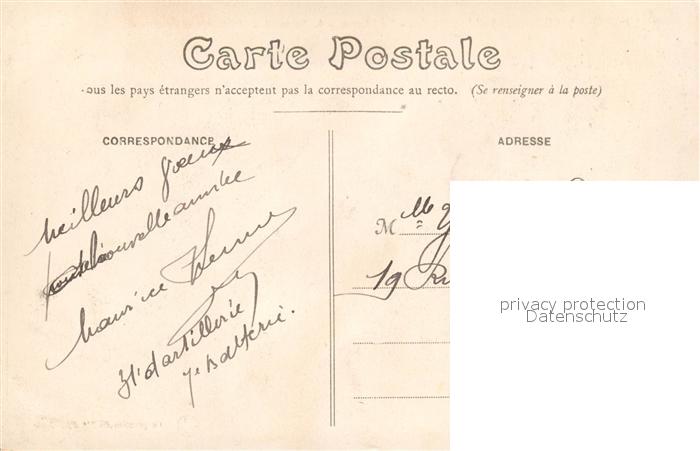 Carte Postale
ous les pays étrangers n'acceptent pas la correspondance au recto. (Se renseigner à la poste)
CORRESPONDANCE
Meilleurs voeux
nouvelle année
Maurice
31e d'artillerie
7e Batterie.
ADRESSE
M Mlle
19 Ru
privacy protection
Datenschutz